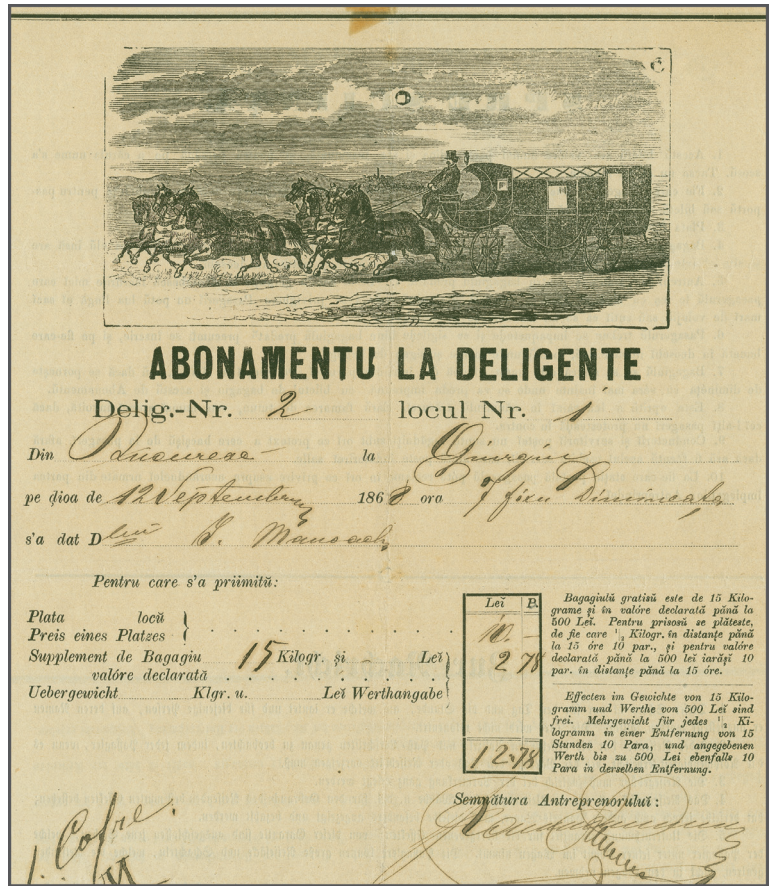 ABONAMENTU LA DELIGENTE
Delig.-Nr. 2 locul Nr. 1
Din Bucuresc la Giurgiu
pe ḑioa de 12 Septembru 1868 ora 7 fixu Dimineața
s'a dat Dlui J. Manoach
Pentru care s'a priimitŭ:
Leĭ P.
Plata locŭ
Preis eines Platzes 10 –
Supplement de Bagagiu 15 Kilogr. și Leĭ 2 78
valóre declarată
Uebergewicht Klgr. u. Leĭ Werthangabe
12.78
Bagagiulŭ gratisŭ este de 15 Kilo-
grame și în valóre declarată pănă la
500 Leĭ. Pentru prisosŭ se plăteste,
de fie care ½ Kilogr. în distanțe pănă
la 15 óre 10 par., și pentru valóre
declarată pănă la 500 lei iarăși 10
par. în distanțe pănă la 15 óre.
Effecten im Gewichte von 15 Kilo-
gramm und Werthe von 500 Leĭ sind
frei. Mehrgewicht für jedes ½ Ki-
logramm in einer Entfernung von 15
Stunden 10 Para, und angegebenen
Werth bis zu 500 Leĭ ebenfalls 10
Para in derselben Entfernung.
Semnătura Antreprenoruluĭ:
1. Cofre.